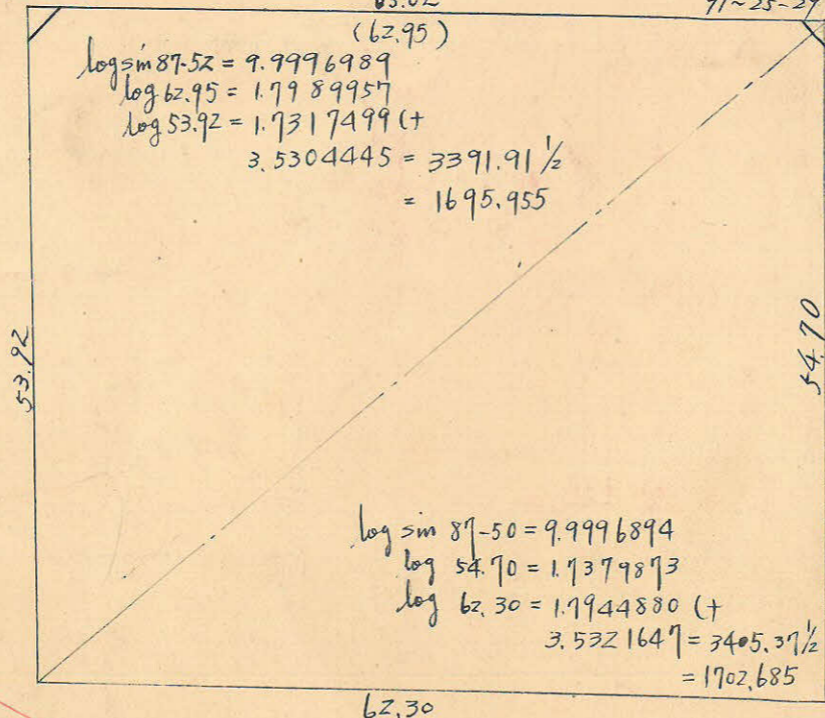 63.02
91~25-29
(62.95)
log sin 87-52 = 9.9996989
log 62.95 = 1.7989957
log 53.92 = 1.7317499 (+
3.5304445 = 3391.91 1/2
= 1695.955
53.92
54.70
log sin 87-50 = 9.9996894
log 54.70 = 1.7379873
log 62.30 = 1.7944880 (+
3.5321647 = 3405.37 1/2
= 1702.685
62.30